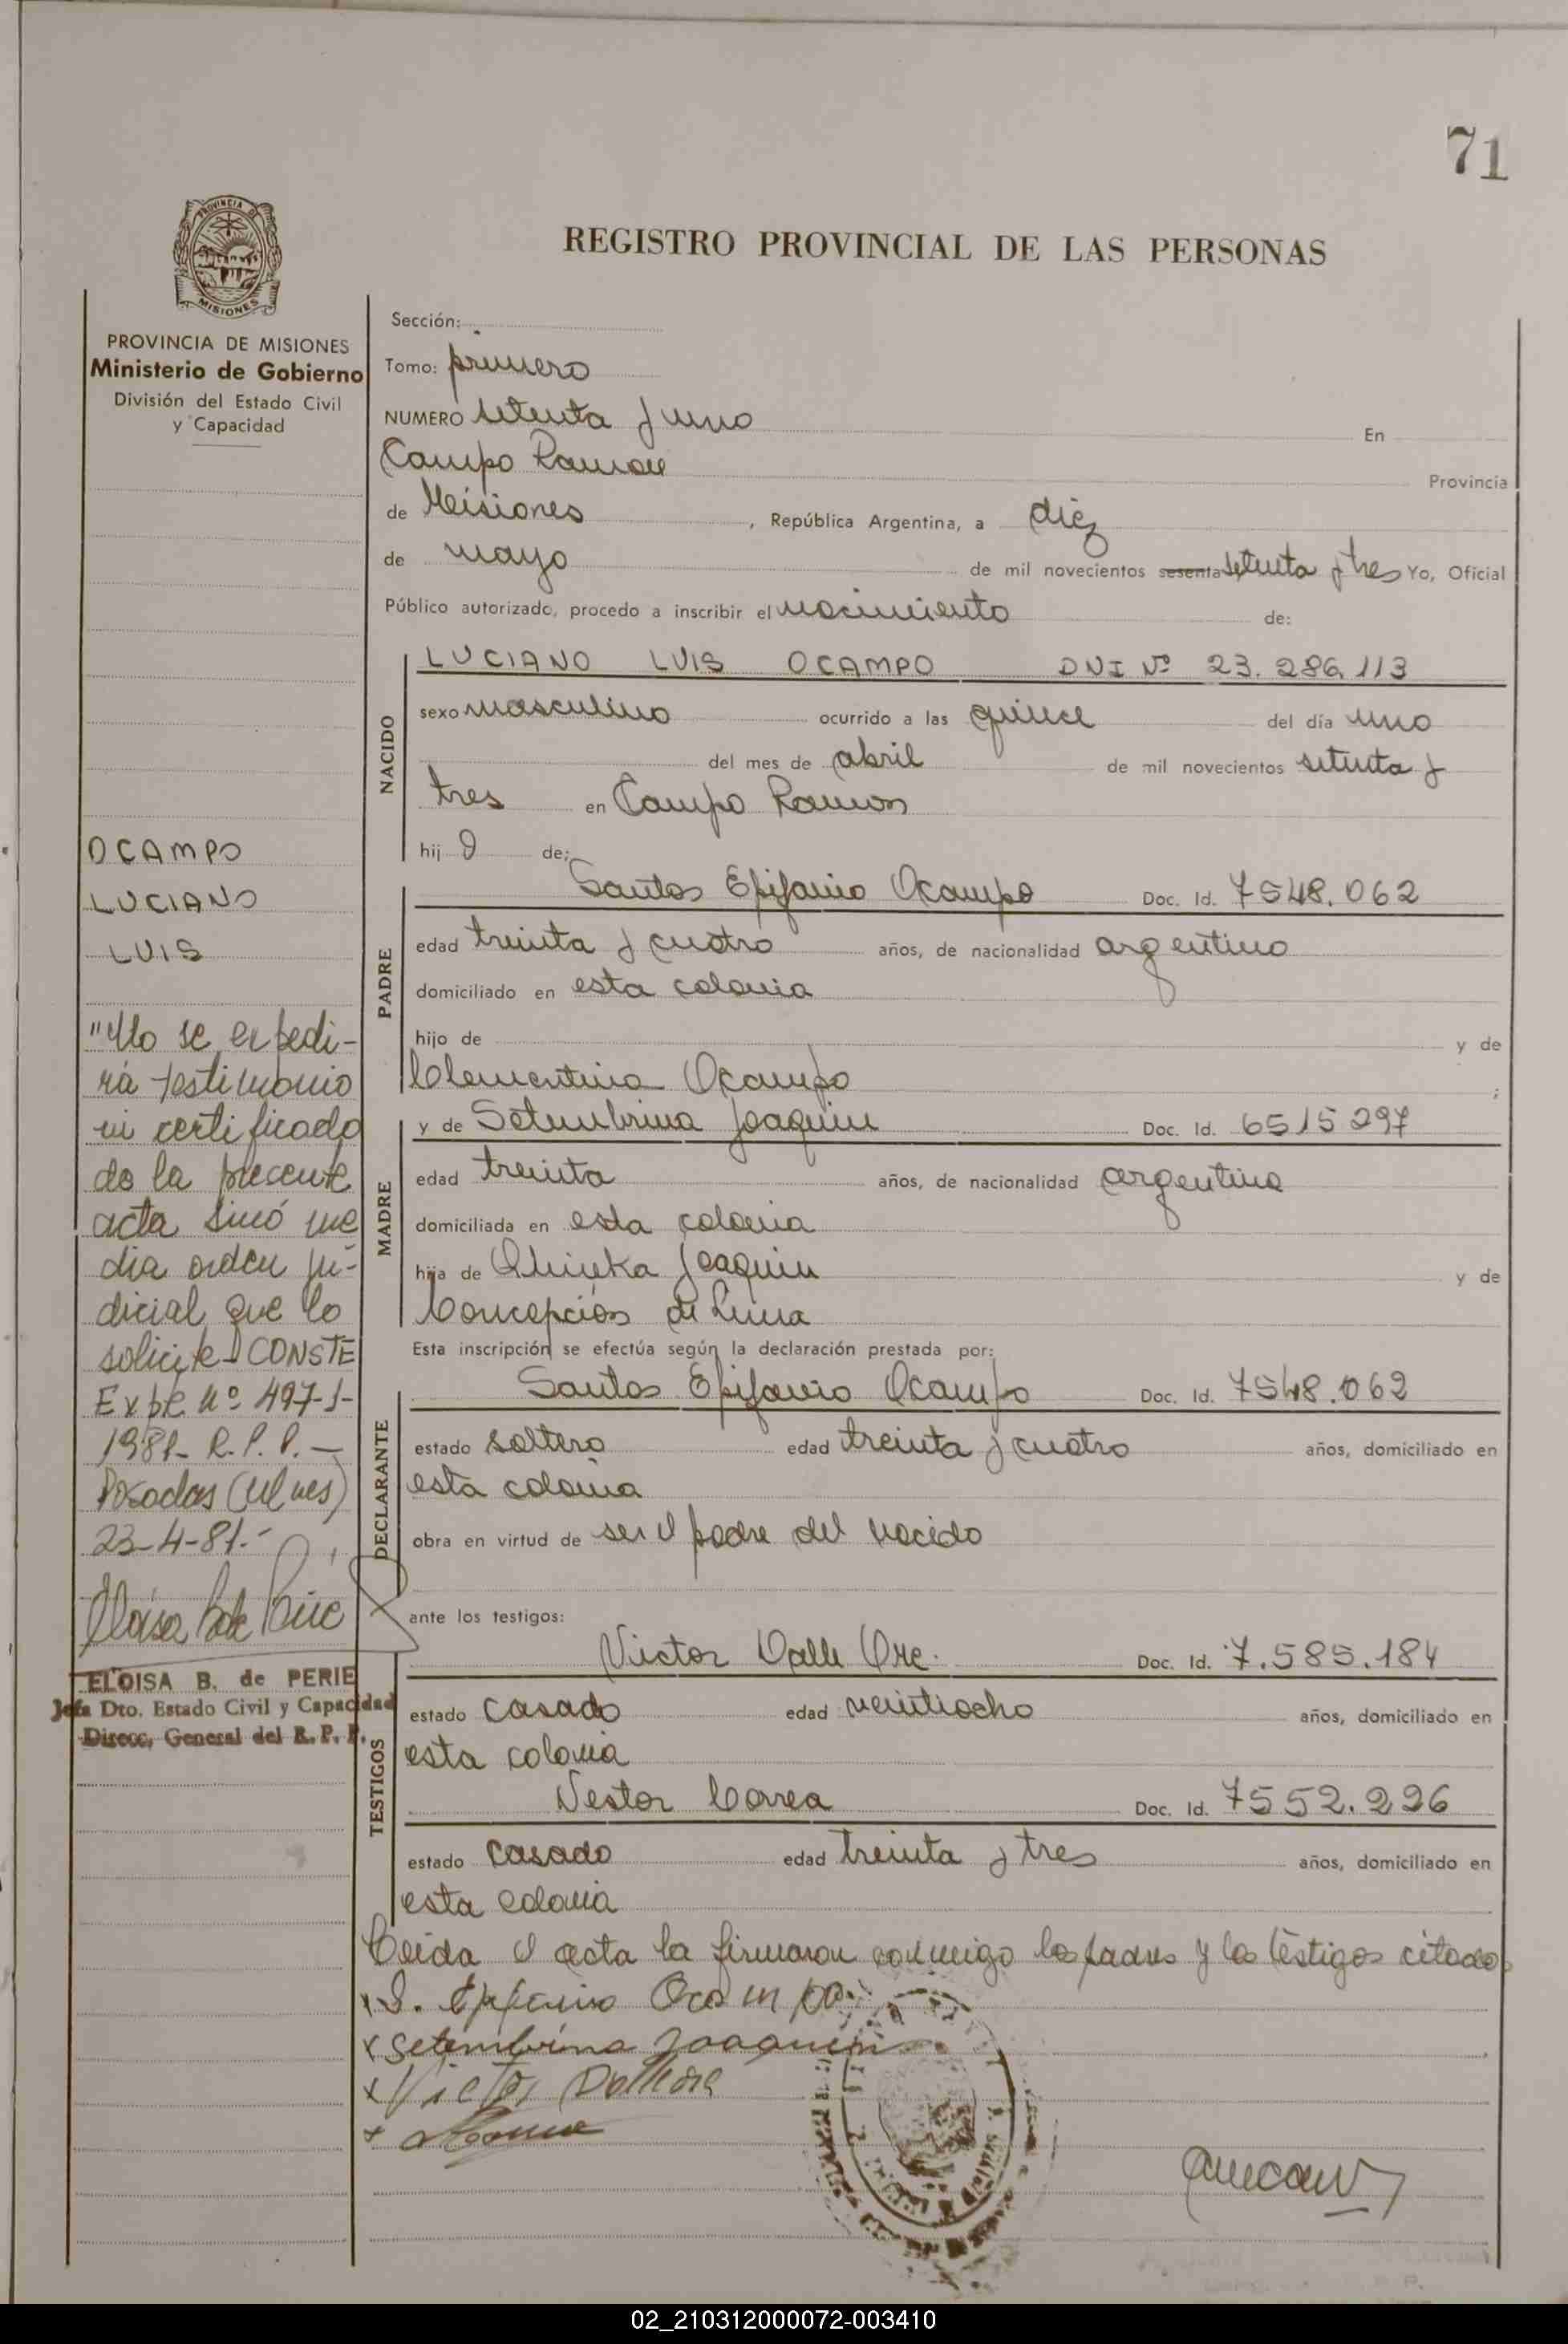 71
PROVINCIA DE MISIONES
REGISTRO PROVINCIAL DE LAS PERSONAS
PROVINCIA DE MISIONES
Ministerio de Gobierno
División del Estado Civil
y Capacidad
OCAMPO
LUCIANO
LUIS
"No se expedi-
rá testimonio
ni certificado
de la presente
acta sinó me
dia orden ju-
dicial que lo
solicite CONSTE
Expte Nº 497-J-
1981- R.P.P.-
Posadas (Mnes)
23-4-81.-
ELOISA B. de PERIE
Jefa Dto. Estado Civil y Capacidad
Direcc. General del R.P.P.
Sección:
Tomo: primero
NUMERO setenta y uno En
Campo Ramon Provincia
de Misiones, República Argentina, a diez
de mayo de mil novecientos sesenta setenta y tres Yo, Oficial
Público autorizado, procedo a inscribir el nacimiento de:
NACIDO
LUCIANO LUIS OCAMPO DNI Nº 23.286.113
sexo masculino ocurrido a las quince del día uno
del mes de abril de mil novecientos setenta y
tres en Campo Ramon
hijo de:
PADRE
Santos Epifanio Ocampo Doc. Id. 7548.062
edad treinta y cuatro años, de nacionalidad argentino
domiciliado en esta colonia
hijo de y de
Clementina Ocampo ;
MADRE
y de Setembrina Joaquin Doc. Id. 6515297
edad treinta años, de nacionalidad argentina
domiciliada en esta colonia
hija de Joaquin y de
Concepción de Lima
Esta inscripción se efectúa según la declaración prestada por:
DECLARANTE
Santos Epifanio Ocampo Doc. Id. 7548.062
estado soltero edad treinta y cuatro años, domiciliado en
esta colonia
obra en virtud de ser el padre del nacido
ante los testigos:
TESTIGOS
Victor Dalle Ore. Doc. Id. 7.585.184
estado casado edad veintiocho años, domiciliado en
esta colonia
Nestor Correa Doc. Id. 7552.296
estado casado edad treinta y tres años, domiciliado en
esta colonia
Leida el acta la firmaron conmigo los padres y los testigos citados
x S. Epifanio Ocampo
x Setembrina Joaquin
x Victor Dalleore
x
02_210312000072-003410